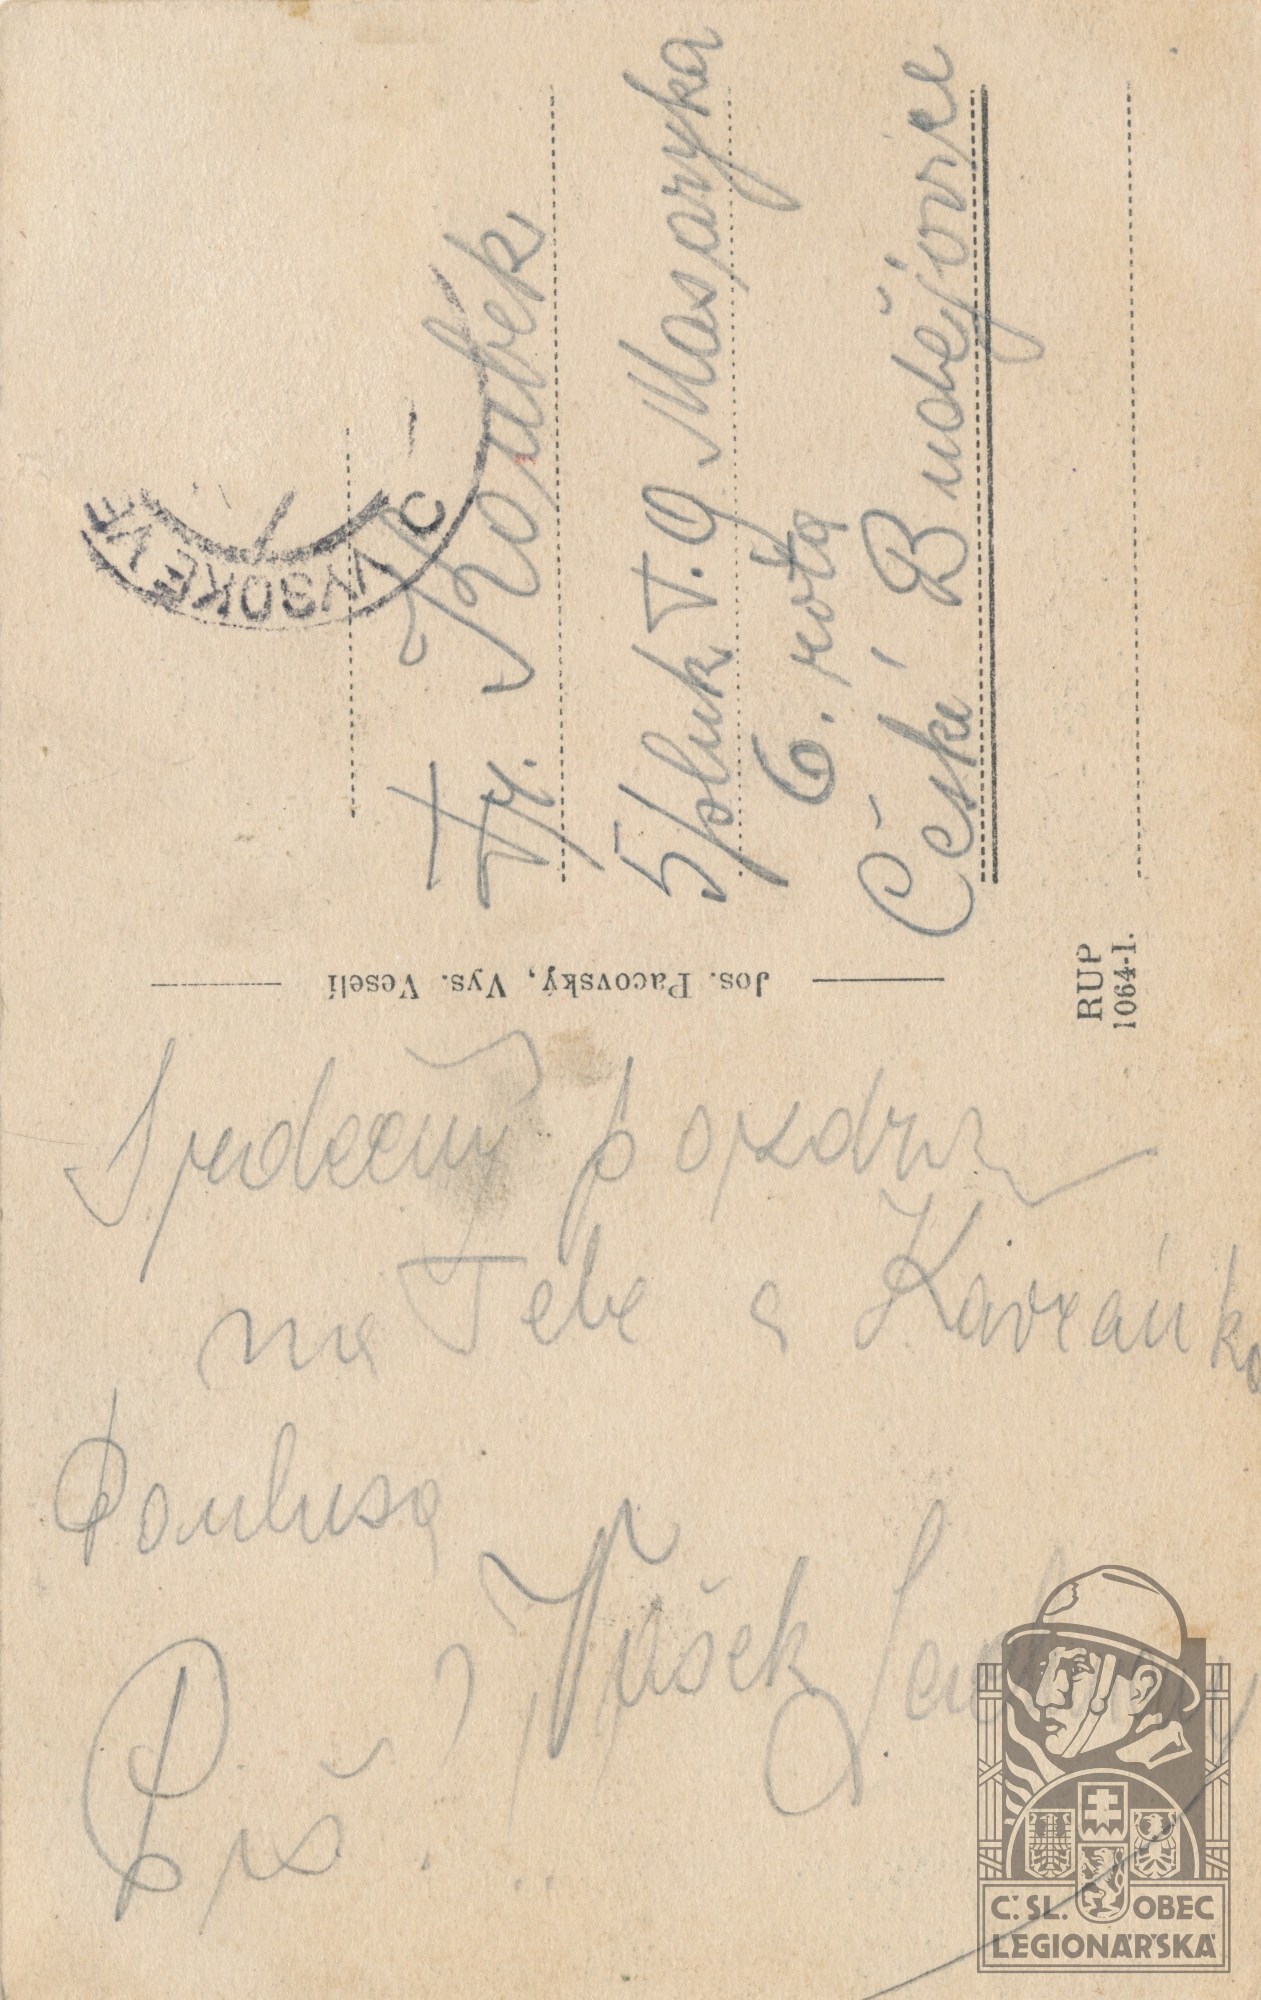 VYSOKÉ
Fr. Koubek
5 pluk T. G Masaryka
6. rota
České Budějovice
Jos. Pacovský, Vys. Veselí
RUP
1064-1.
Srdečný pozdrav
na Tebe a
Piš! Vašek
Č.SL. OBEC
LEGIONÁŘSKÁ